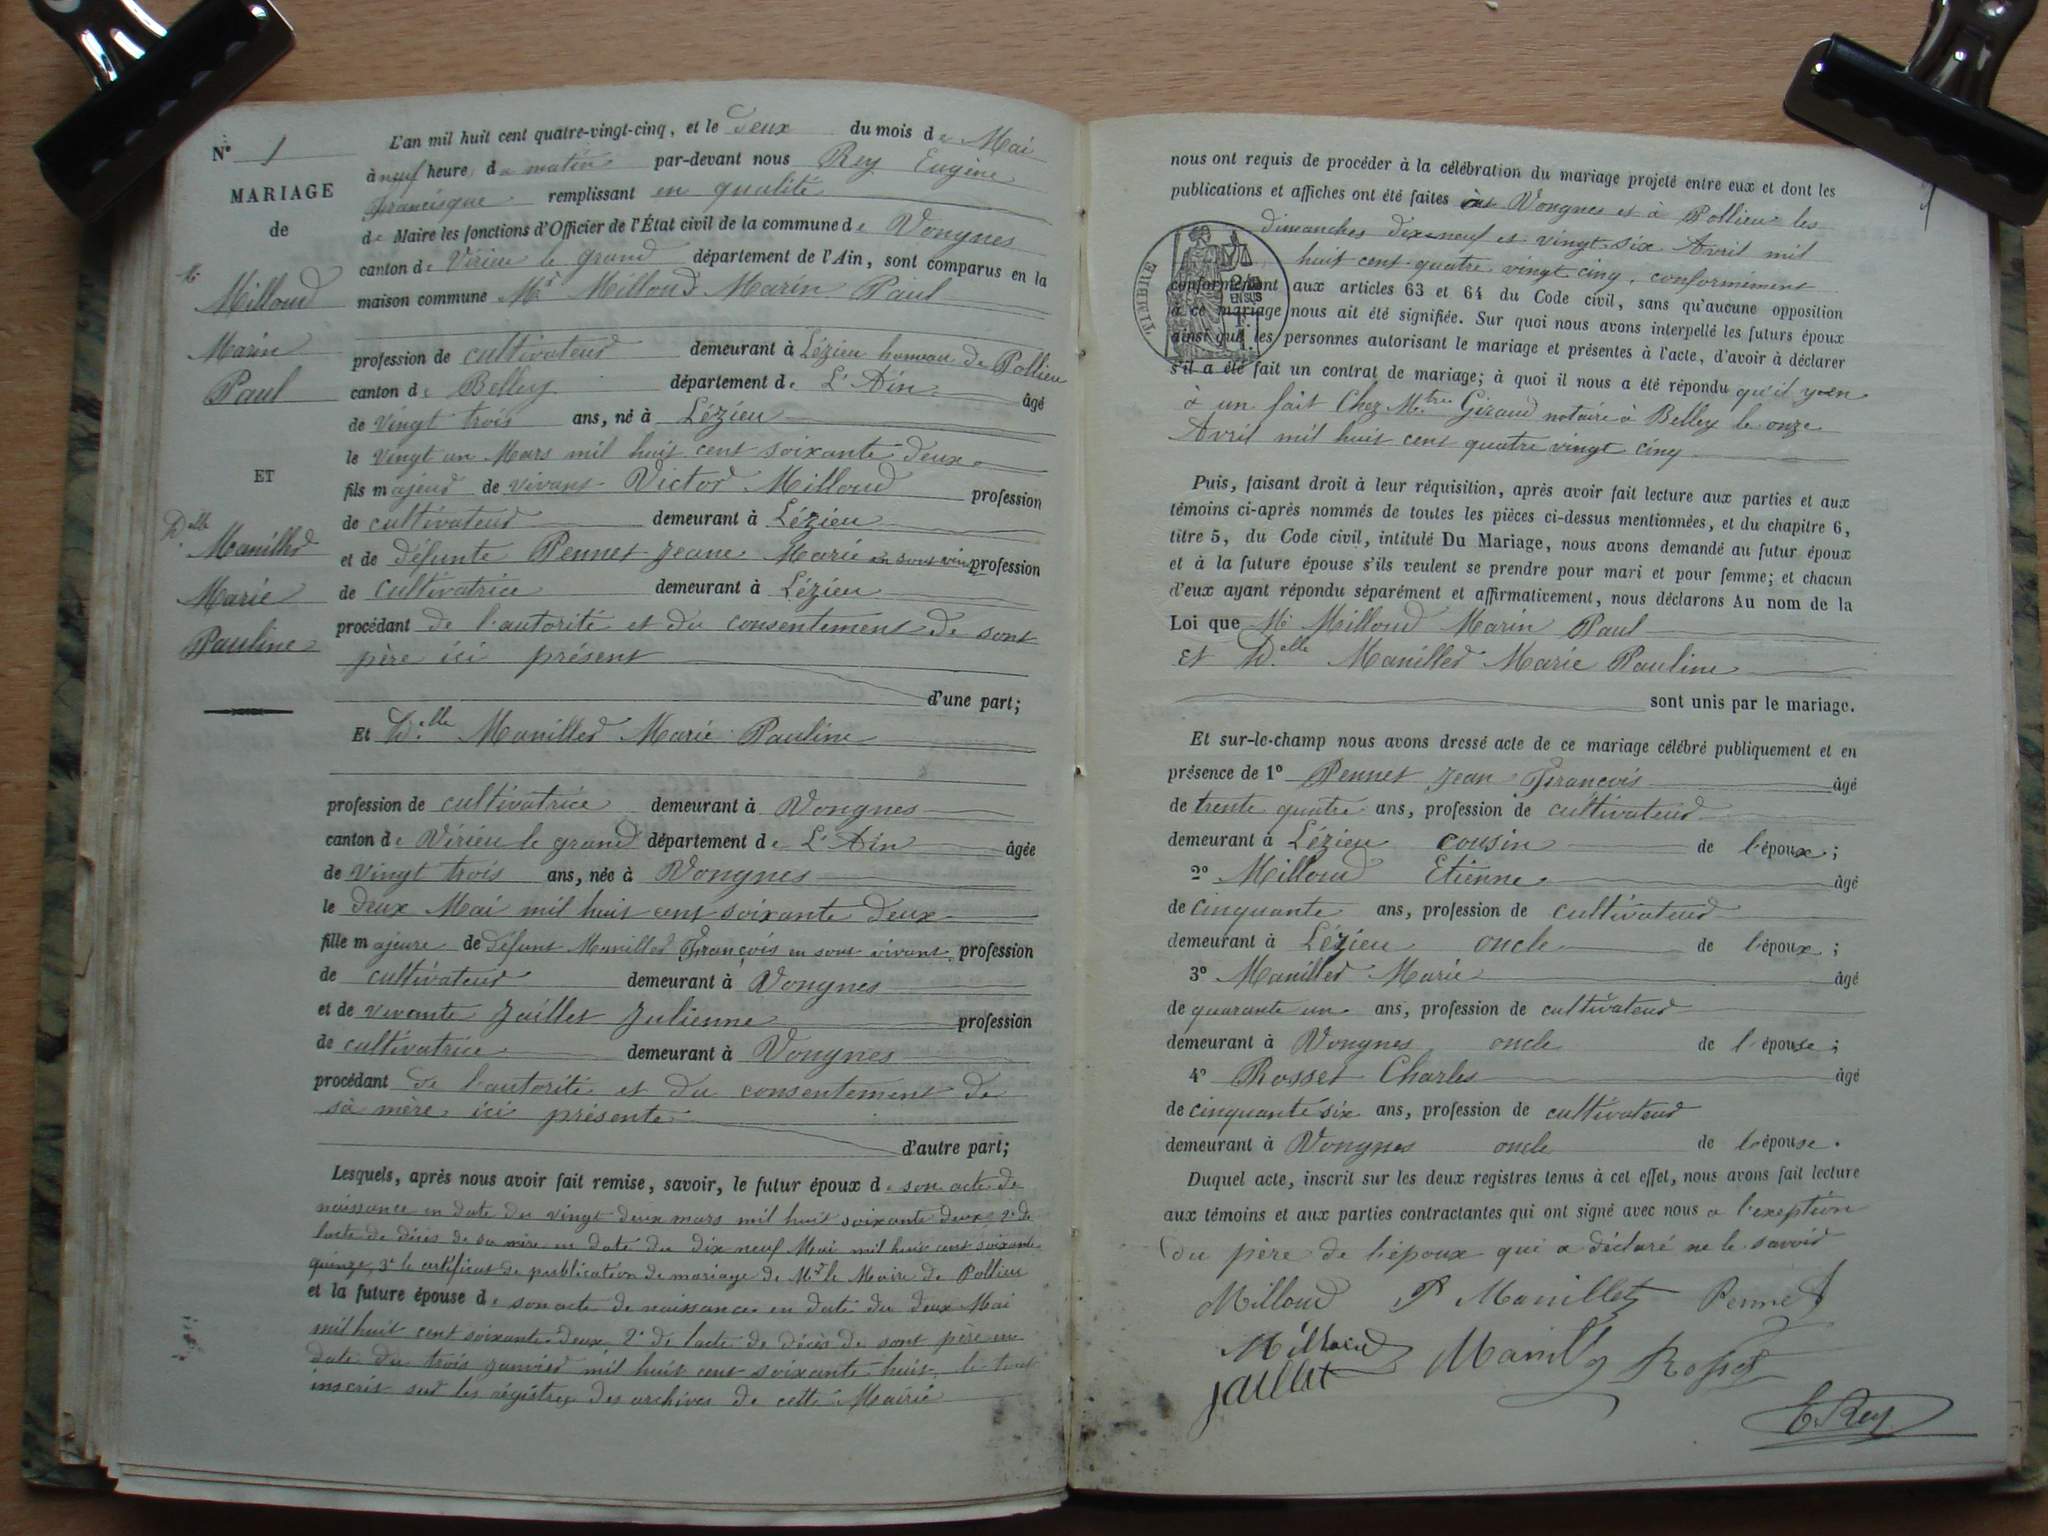 N° 1
MARIAGE
de
Mr Milloud
Marin
Paul
ET
Delle Manillier
Marie
Pauline
L'an mil huit cent quatre-vingt-cinq, et le deux du mois de Mai
à neuf heure du matin par-devant nous Rey Eugène
Francisque remplissant en qualité
de Maire les fonctions d'Officier de l'État civil de la commune de Vongnes
canton de Virieu le grand département de l'Ain, sont comparus en la
maison commune Mr Milloud Marin Paul
profession de cultivateur demeurant à Lézieu hameau de Pollieu
canton de Belley département de L'Ain âgé
de vingt trois ans, né à Lézieu
le vingt un Mars mil huit cent soixante deux
fils majeur de vivant Victor Milloud profession
de cultivateur demeurant à Lézieu
et de défunte Pennet Jeane Marie en sont vivant profession
de cultivatrice demeurant à Lézieu
procédant de l'autorité et du consentement de sont
père ici présent
d'une part;
Et Delle Manillier Marie Pauline
profession de cultivatrice demeurant à Vongnes
canton de Virieu le grand département de L'Ain âgée
de vingt trois ans, née à Vongnes
le deux Mai mil huit cent soixante deux
fille majeure de défunt Manillier François en sont vivant profession
de cultivateur demeurant à Vongnes
et de vivante Jaillet Julienne profession
de cultivatrice demeurant à Vongnes
procédant de l'autorité et du consentement de
sa mère ici présente
d'autre part;
Lesquels, après nous avoir fait remise, savoir, le futur époux de son acte de
naissance en date du vingt deux mars mil huit soixante deux 2° de
l'acte de décès de sa mère en date du dix neuf Mai mil huit cent soixante
quinze, 3° le certificat de publication de mariage de Mr le Maire de Pollieu
et la future épouse de son acte de naissance en date du deux Mai
mil huit cent soixante deux 2° de l'acte de décès de sont père en
date du trois janvier mil huit cent soixante huit, le tout
inscrit sur les régistres des archives de cette Mairie
nous ont requis de procéder à la célébration du mariage projeté entre eux et dont les
publications et affiches ont été faites à Vongnes et à Pollieu les
dimanches dix-neuf et vingt-six Avril mil
huit cent quatre vingt cinq, conformément
conformément aux articles 63 et 64 du Code civil, sans qu'aucune opposition
à ce mariage nous ait été signifiée. Sur quoi nous avons interpellé les futurs époux
ainsi que les personnes autorisant le mariage et présentes à l'acte, d'avoir à déclarer
s'il a été fait un contrat de mariage; à quoi il nous a été répondu qu'il y en
à un fait Chez Mtre Giraud notaire à Belley le onze
Avril mil huit cent quatre vingt cinq
TIMBRE
EN SUS
Puis, faisant droit à leur réquisition, après avoir fait lecture aux parties et aux
témoins ci-après nommés de toutes les pièces ci-dessus mentionnées, et du chapitre 6,
titre 5, du Code civil, intitulé Du Mariage, nous avons demandé au futur époux
et à la future épouse s'ils veulent se prendre pour mari et pour femme; et chacun
d'eux ayant répondu séparément et affirmativement, nous déclarons Au nom de la
Loi que Mr Milloud Marin Paul
et Delle Manillier Marie Pauline
sont unis par le mariage.
Et sur-le-champ nous avons dressé acte de ce mariage célébré publiquement et en
présence de 1° Pennet Jean François âgé
de trente quatre ans, profession de cultivateur
demeurant à Lézieu cousin de l'époux;
2° Milloud Etienne âgé
de cinquante ans, profession de cultivateur
demeurant à Lézieu oncle de l'époux;
3° Manillier Marie âgé
de quarante un ans, profession de cultivateur
demeurant à Vongnes oncle de l'épouse;
4° Rosset Charles âgé
de cinquante six ans, profession de cultivateur
demeurant à Vongnes oncle de l'épouse.
Duquel acte, inscrit sur les deux registres tenus à cet effet, nous avons fait lecture
aux témoins et aux parties contractantes qui ont signé avec nous a l'exeption
du père de l'époux qui a déclaré ne le savoir
Milloud P Manillier Pennet
Milloud Manillier Rosset
Jaillet
E. Rey